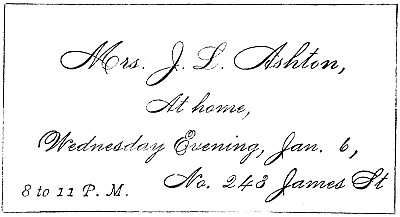 Mrs. J. L. Ashton,
At home,
Wednesday Evening, Jan. 6,
8 to 11 P. M. No. 243 James St